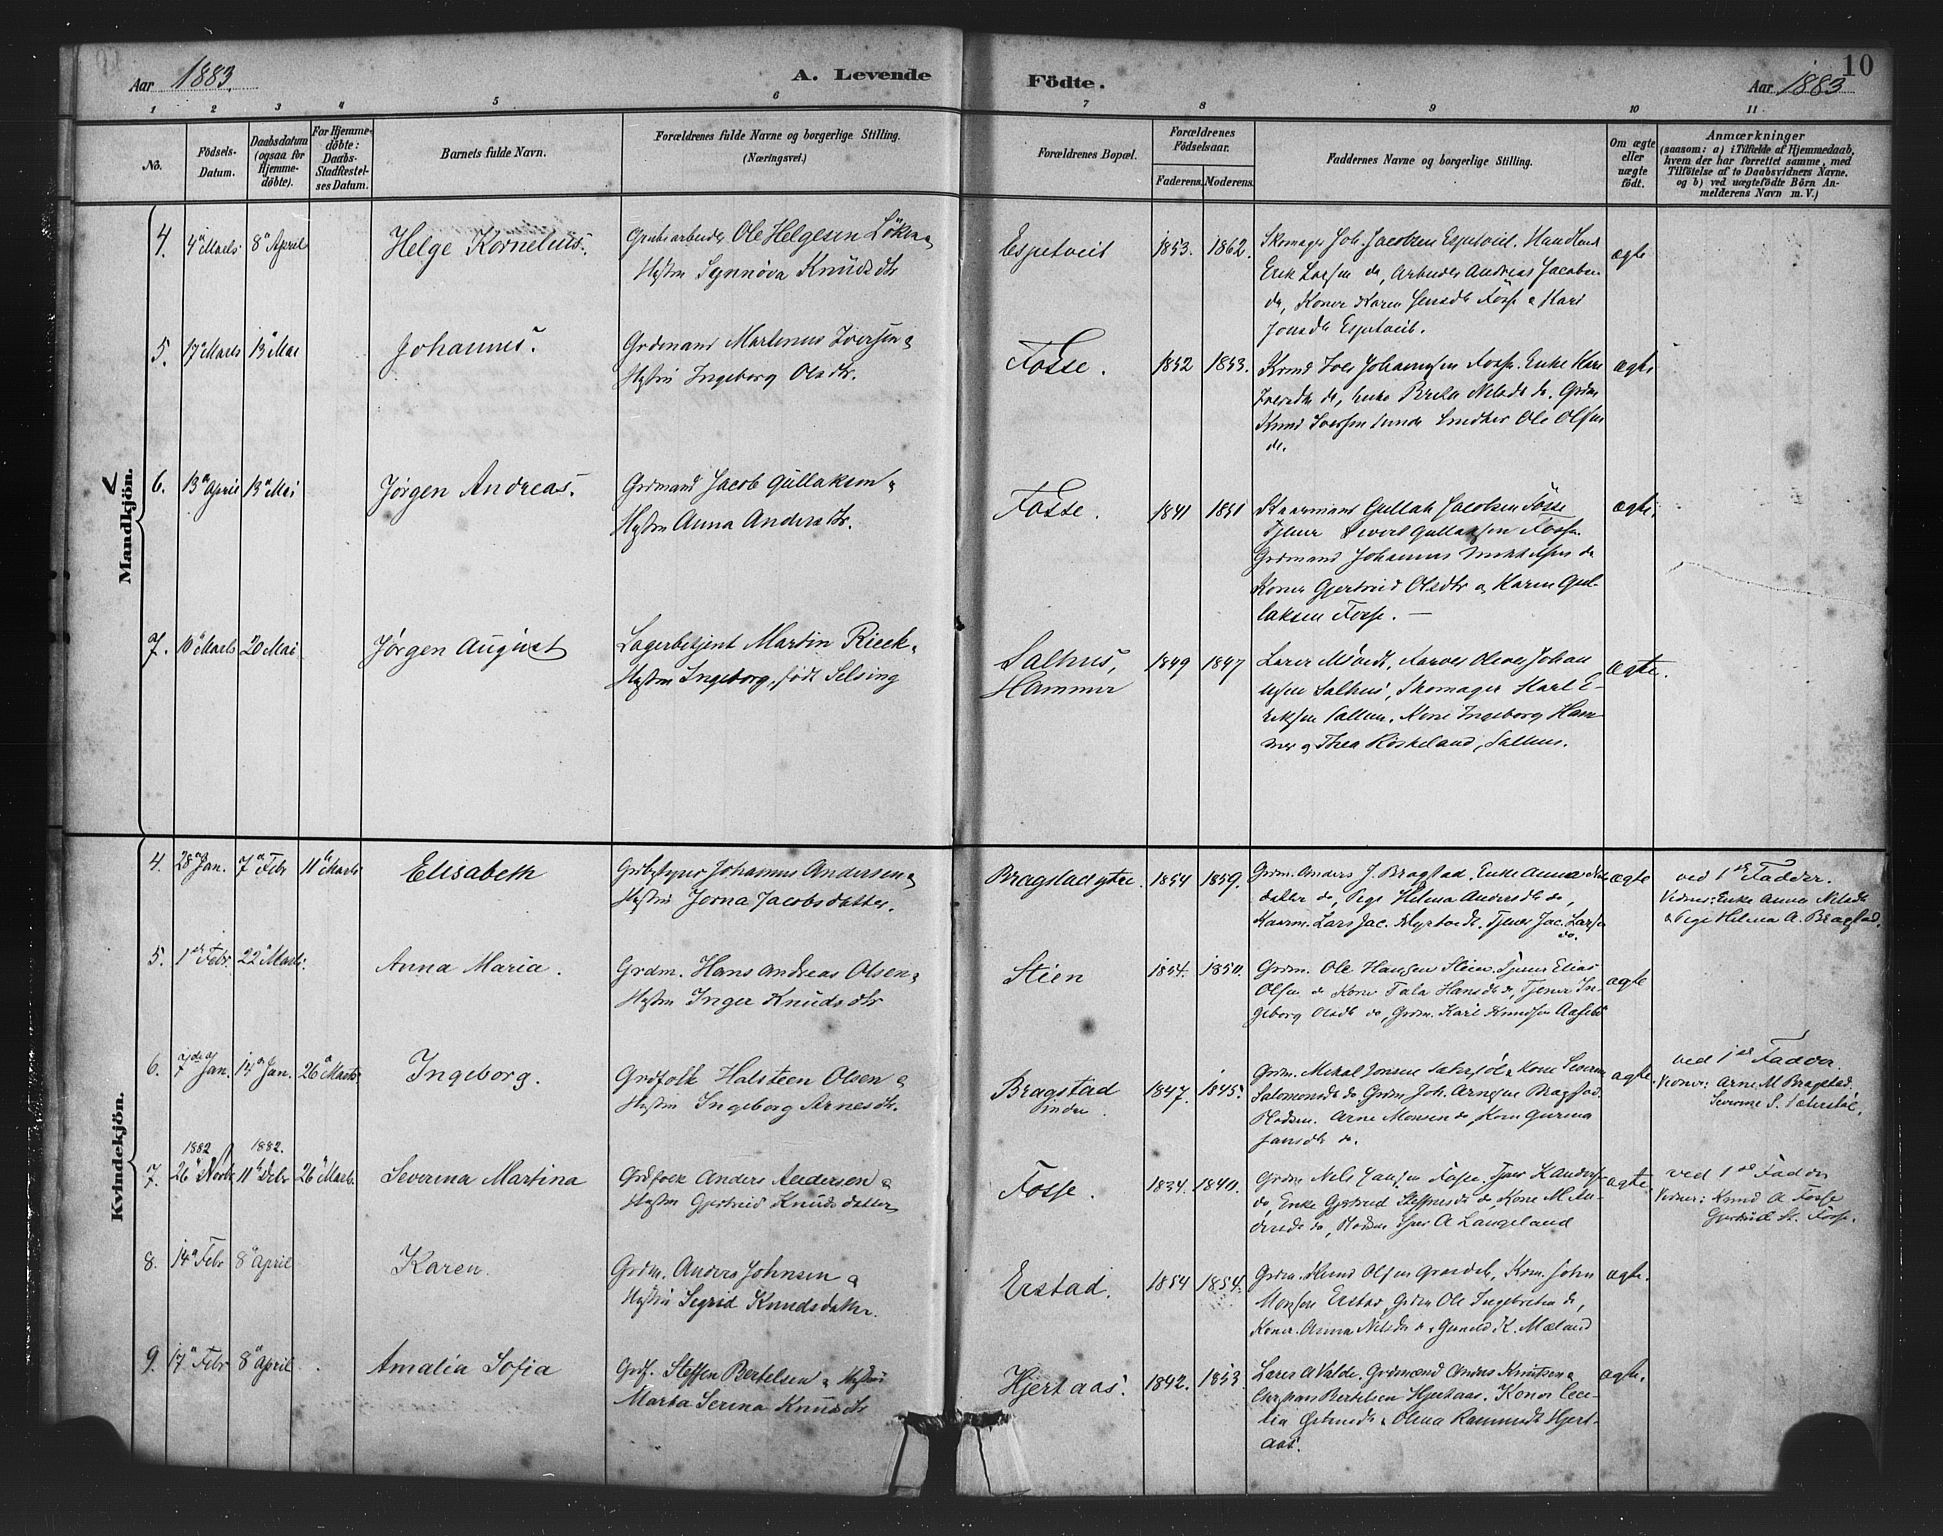 10
Aar 1883.
A. Levende
Födte.
Aar 1883
1 2 3 4 5 6 7 8 9 10 11
No.
Födsels-
Datum.
Daabsdatum
(ogsaa for
Hjemme-
döbte).
For Hjemme-
döbte:
Daabs-
Stadfæstel-
ses Datum.
Barnets fulde Navn.
Forældrenes fulde Navne og borgerlige Stilling.
(Næringsvei.)
Forældrenes Bopæl.
Forældrenes
Födselsaar.
Faderens. Moderens.
Faddernes Navne og borgerlige Stilling.
Om ægte
eller
uægte
födt.
Anmærkninger
(saasom: a) i Tilfælde af Hjemmedaab,
hvem der har forrettet samme, med
Tilföielse af to Daabsvidners Navne.
og b) ved uægtefödte Börn An-
melderens Navn m. V.)
Mandkjön.
4. 4 Marts 8 April Helge Kornelius.
Ole Helgesen
Hustru Synnöva Knudsdtr
Espetveit 1853. 1862.
Skomager Joh. Jacobsen Espetveit,
Erik Larsen do, Arbeider Andreas Jacobsen
do, Koner Karen Jensdtr Fosse & Kari
Jonsdtr Espetveit.
ægte
5. 17 Marts 13 Mai Johannes.
Grdmand Martinus Iversen &
Hustru Ingeborg Olsdtr.
Fosse. 1852 1853.
Iver Johannesen Fosse. Enke Kari
Iversdtr do, Enke Brita Nilsdtr do. Grdm
Knud Iversen Ole Olsen
do.
ægte
6. 13 April 13 Mai Jörgen Andreas.
Grdmand Jacob Gullaksen &
Hustru Anna Andersdtr.
Fosse. 1841 1851
Kaarmand Gullak Jacobsen Fosse
Tjener Sivert Gullaksen Fosse.
Grdmand Johannes Mikkelsen do
Koner Gjertrud Olsdtr & Karen Gul-
laksen Fosse. —
ægte.
7. 10 Marts 20 Mai Jörgen August
Lagerbetjent Martin Rieck &
Hustru Ingeborg, född Selsing
Salhus,
Hammer
1849 1847
Lærer
Salhus, Skomager Karl E-
riksen Salhus. Kone Ingeborg Ham-
mer & Thea Röskeland, Salhus.
ægte.
Kvindekjön.
4. 28 Jan. 7 Febr 11 Marts Elisabeth
Johannes Andersen &
Hustru Jorna Jacobsdatter.
Bragstad ytre. 1854 1859.
Grdm. Anders J. Bragstad. Enke Anna Nils
datter do, Pige Helena Andersdtr do,
Kaarm. Lars Jac. Tjener Jac. Larsen
do.
ægte
ved 1ste Fadder.
Vidner: Enke Anna Nilsdtr
& Pige Helena A. Bragstad.
5. 1ste Febr. 22 Marts. Anna Maria.
Grdm. Hans Andreas Olsen &
Hustru Inger Knudsdtr
Stien 1854. 1850.
Grdm. Ole Hansen Stien. Tjener Elias
Olsen do Kone Tala Hansdtr do, Tjener In-
geborg Olsdtr do, Grdm. Karl Knudsen
ægte
6. 7de Jan. 14 Jan. 26 Marts Ingeborg.
Grdfolk Halsteen Olsen &
Hustru Ingeborg Arnesdtr.
Bragstad
indre.
1847. 1845.
Grdm. Mikal Jonsen & Kone Severine
Salomonsdtr do Grdm Joh. Arnesen Bragstad.
Arne Monsen do, Kone Gurina
Jonsdtr do.
ægte.
ved 1ste Fadder
Vidner: Arne M Bragstad.
Severine S.
1882 1882.
7. 26 Novbr 11 Debr 26 Marts. Severina Martina
Grdfolk Anders Andersen &
Hustru Gjertrud Knudsdatter
Fosse. 1834. 1840.
Grdm Nils Jansen Fosse,
do, Enke Gjertrud Steffensdtr do, Kone M An-
dersdtr do, A Langeland
ægte
ved 1ste Fadder
Vidner: Knud A Fosse
Gjertrud St. Fosse.
8. 14 Febr 8 April Karen.
Grdm. Anders Johnsen &
Hustru Sigrid Knudsdatter.
Erstad. 1854 1854.
Grdm. Knud Olsen John
Monsen Erstad, Grdm Ole Ingebretsen do,
Koner. Anna Nilsdtr do & K. Mæland
ægte.
9. 17 Febr 8 April Amalia Sofia
Grdf. Steffen Bertelsen & Hustru
Marta Serina Knudsdtr
Hjertaas. 1842. 1853
Lærer A Valde, Grdmænd Anders Knutsen &
Bertelsen Hjertaas, Koner Cece-
lia & Olina Rasmusdtr Hjert-
aas.
ægte.